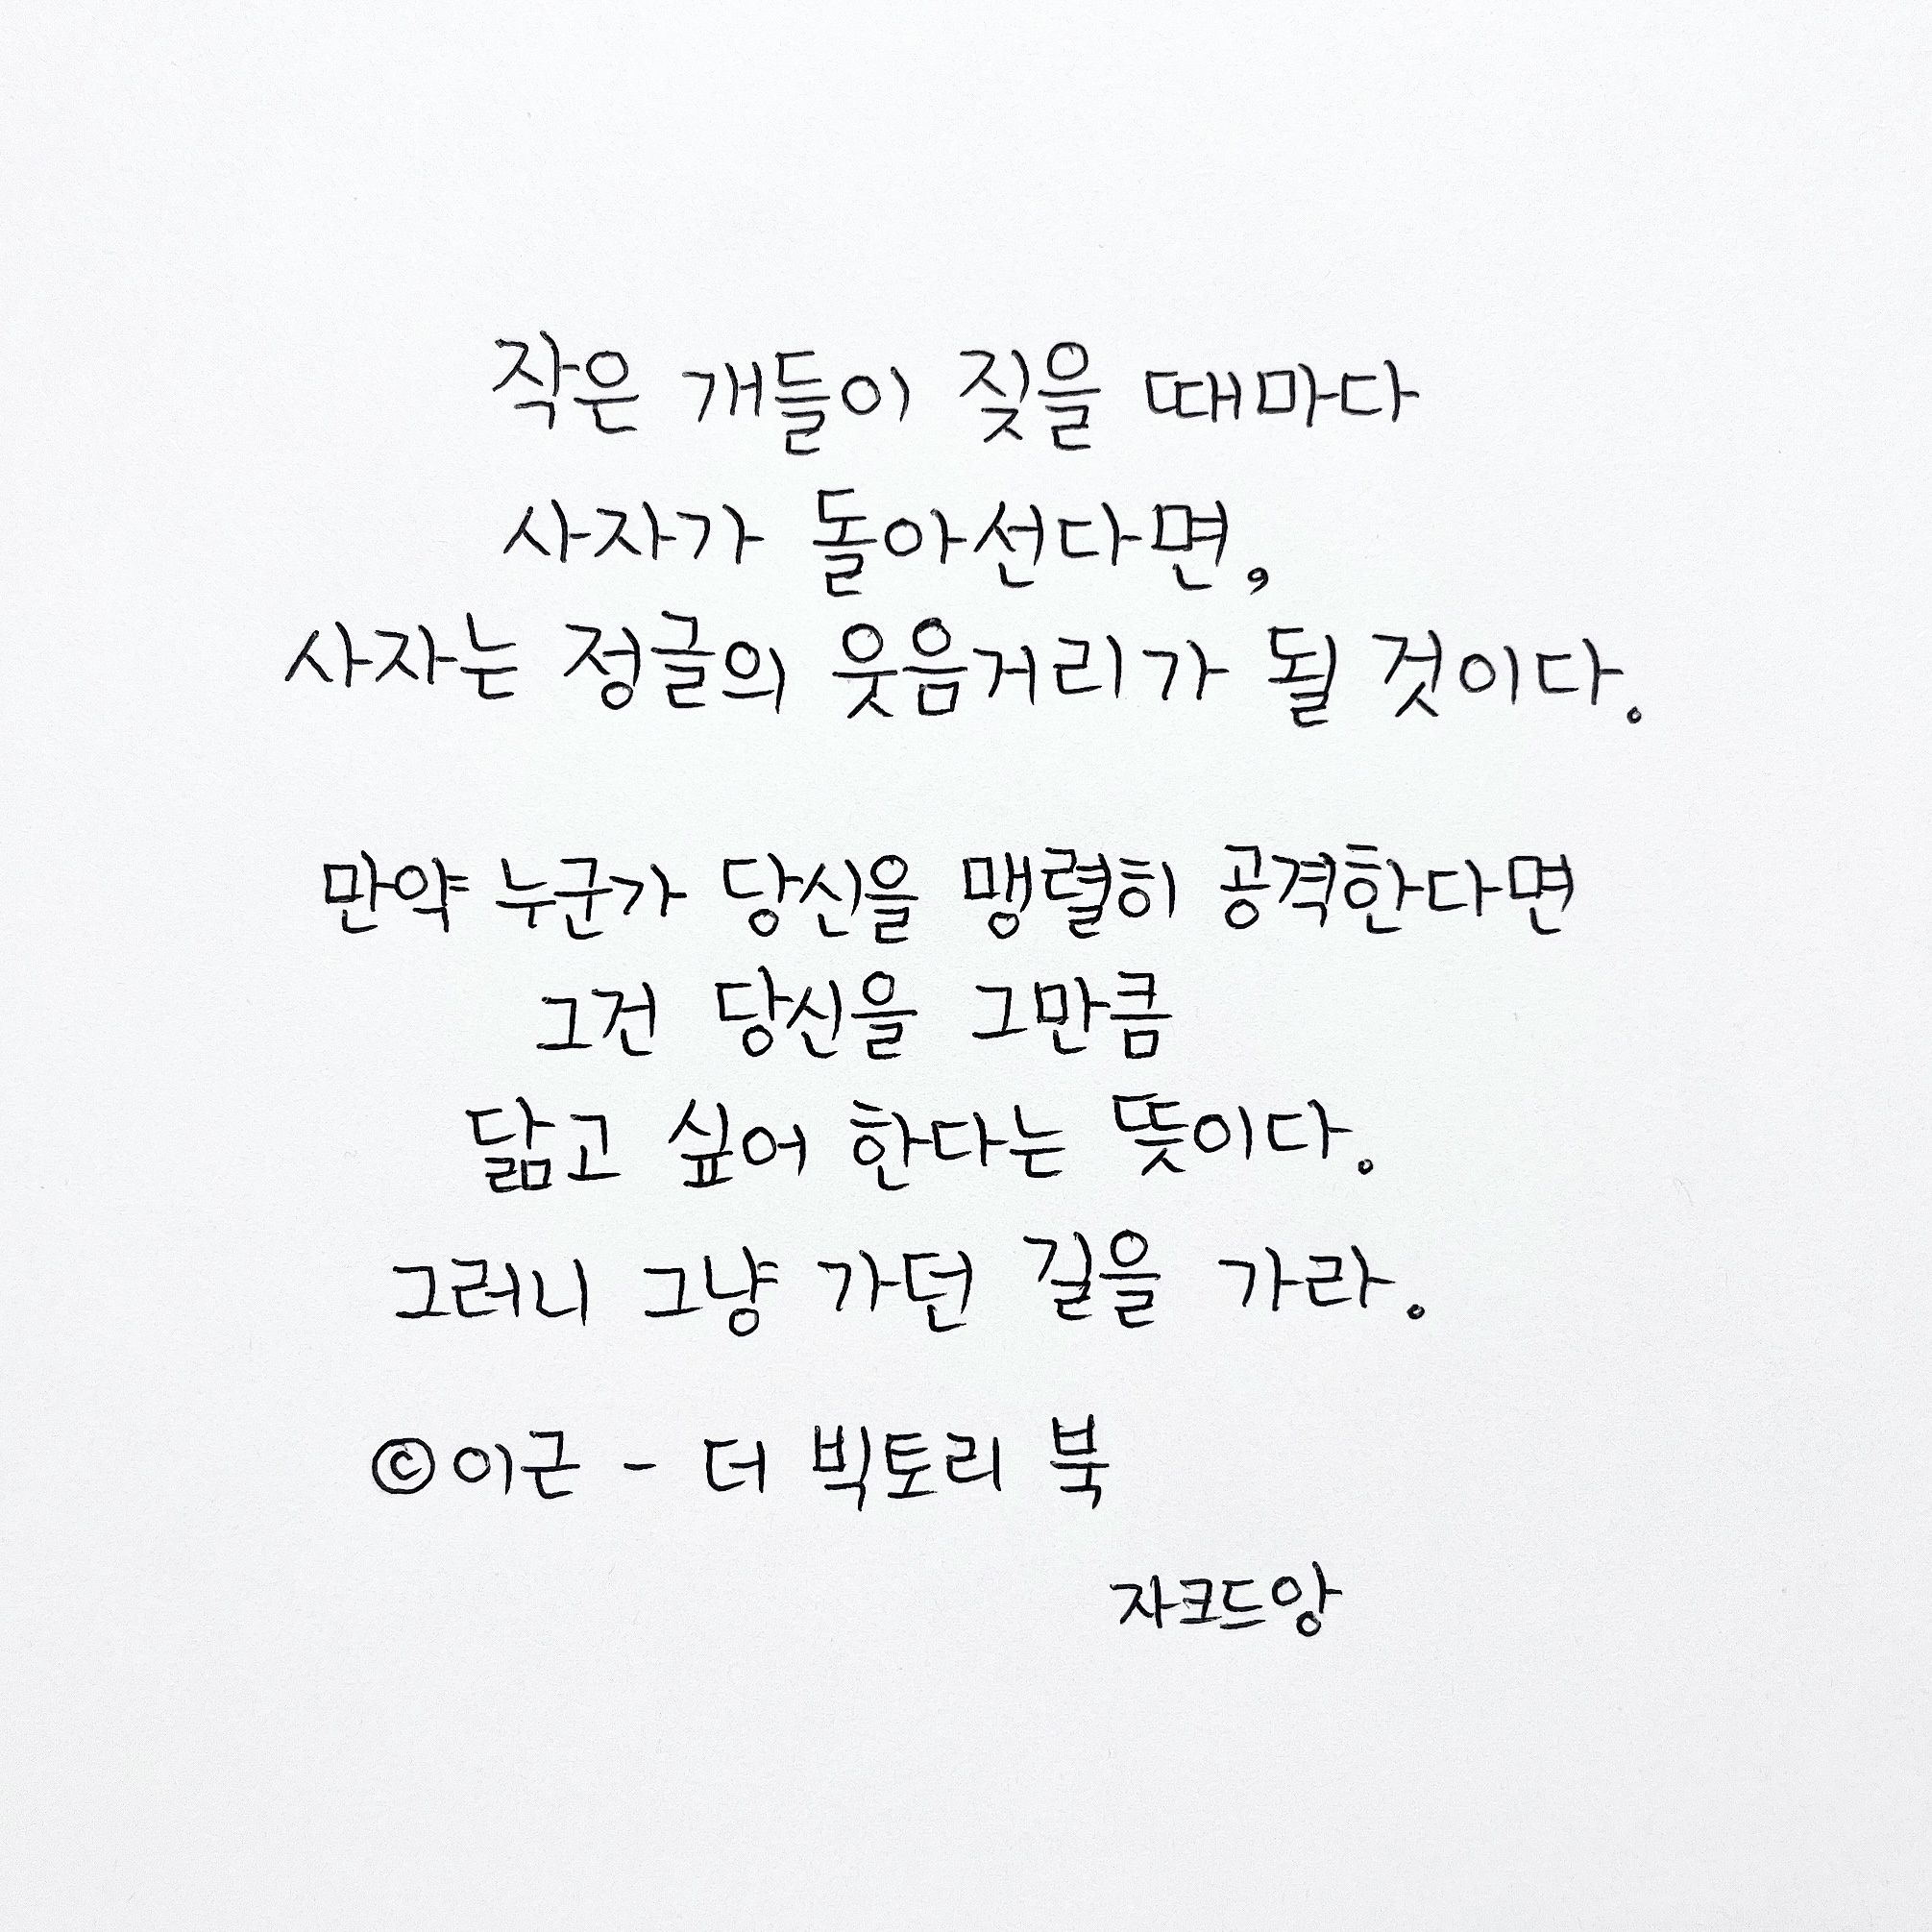 작은 개들이 짖을 때마다
사자가 돌아선다면,
사자는 정글의 웃음거리가 될 것이다.
만약 누군가 당신을 맹렬히 공격한다면
그건 당신을 그만큼
닮고 싶어 한다는 뜻이다.
그러니 그냥 가던 길을 가라.
©이근 - 더 빅토리 북
자크드앙